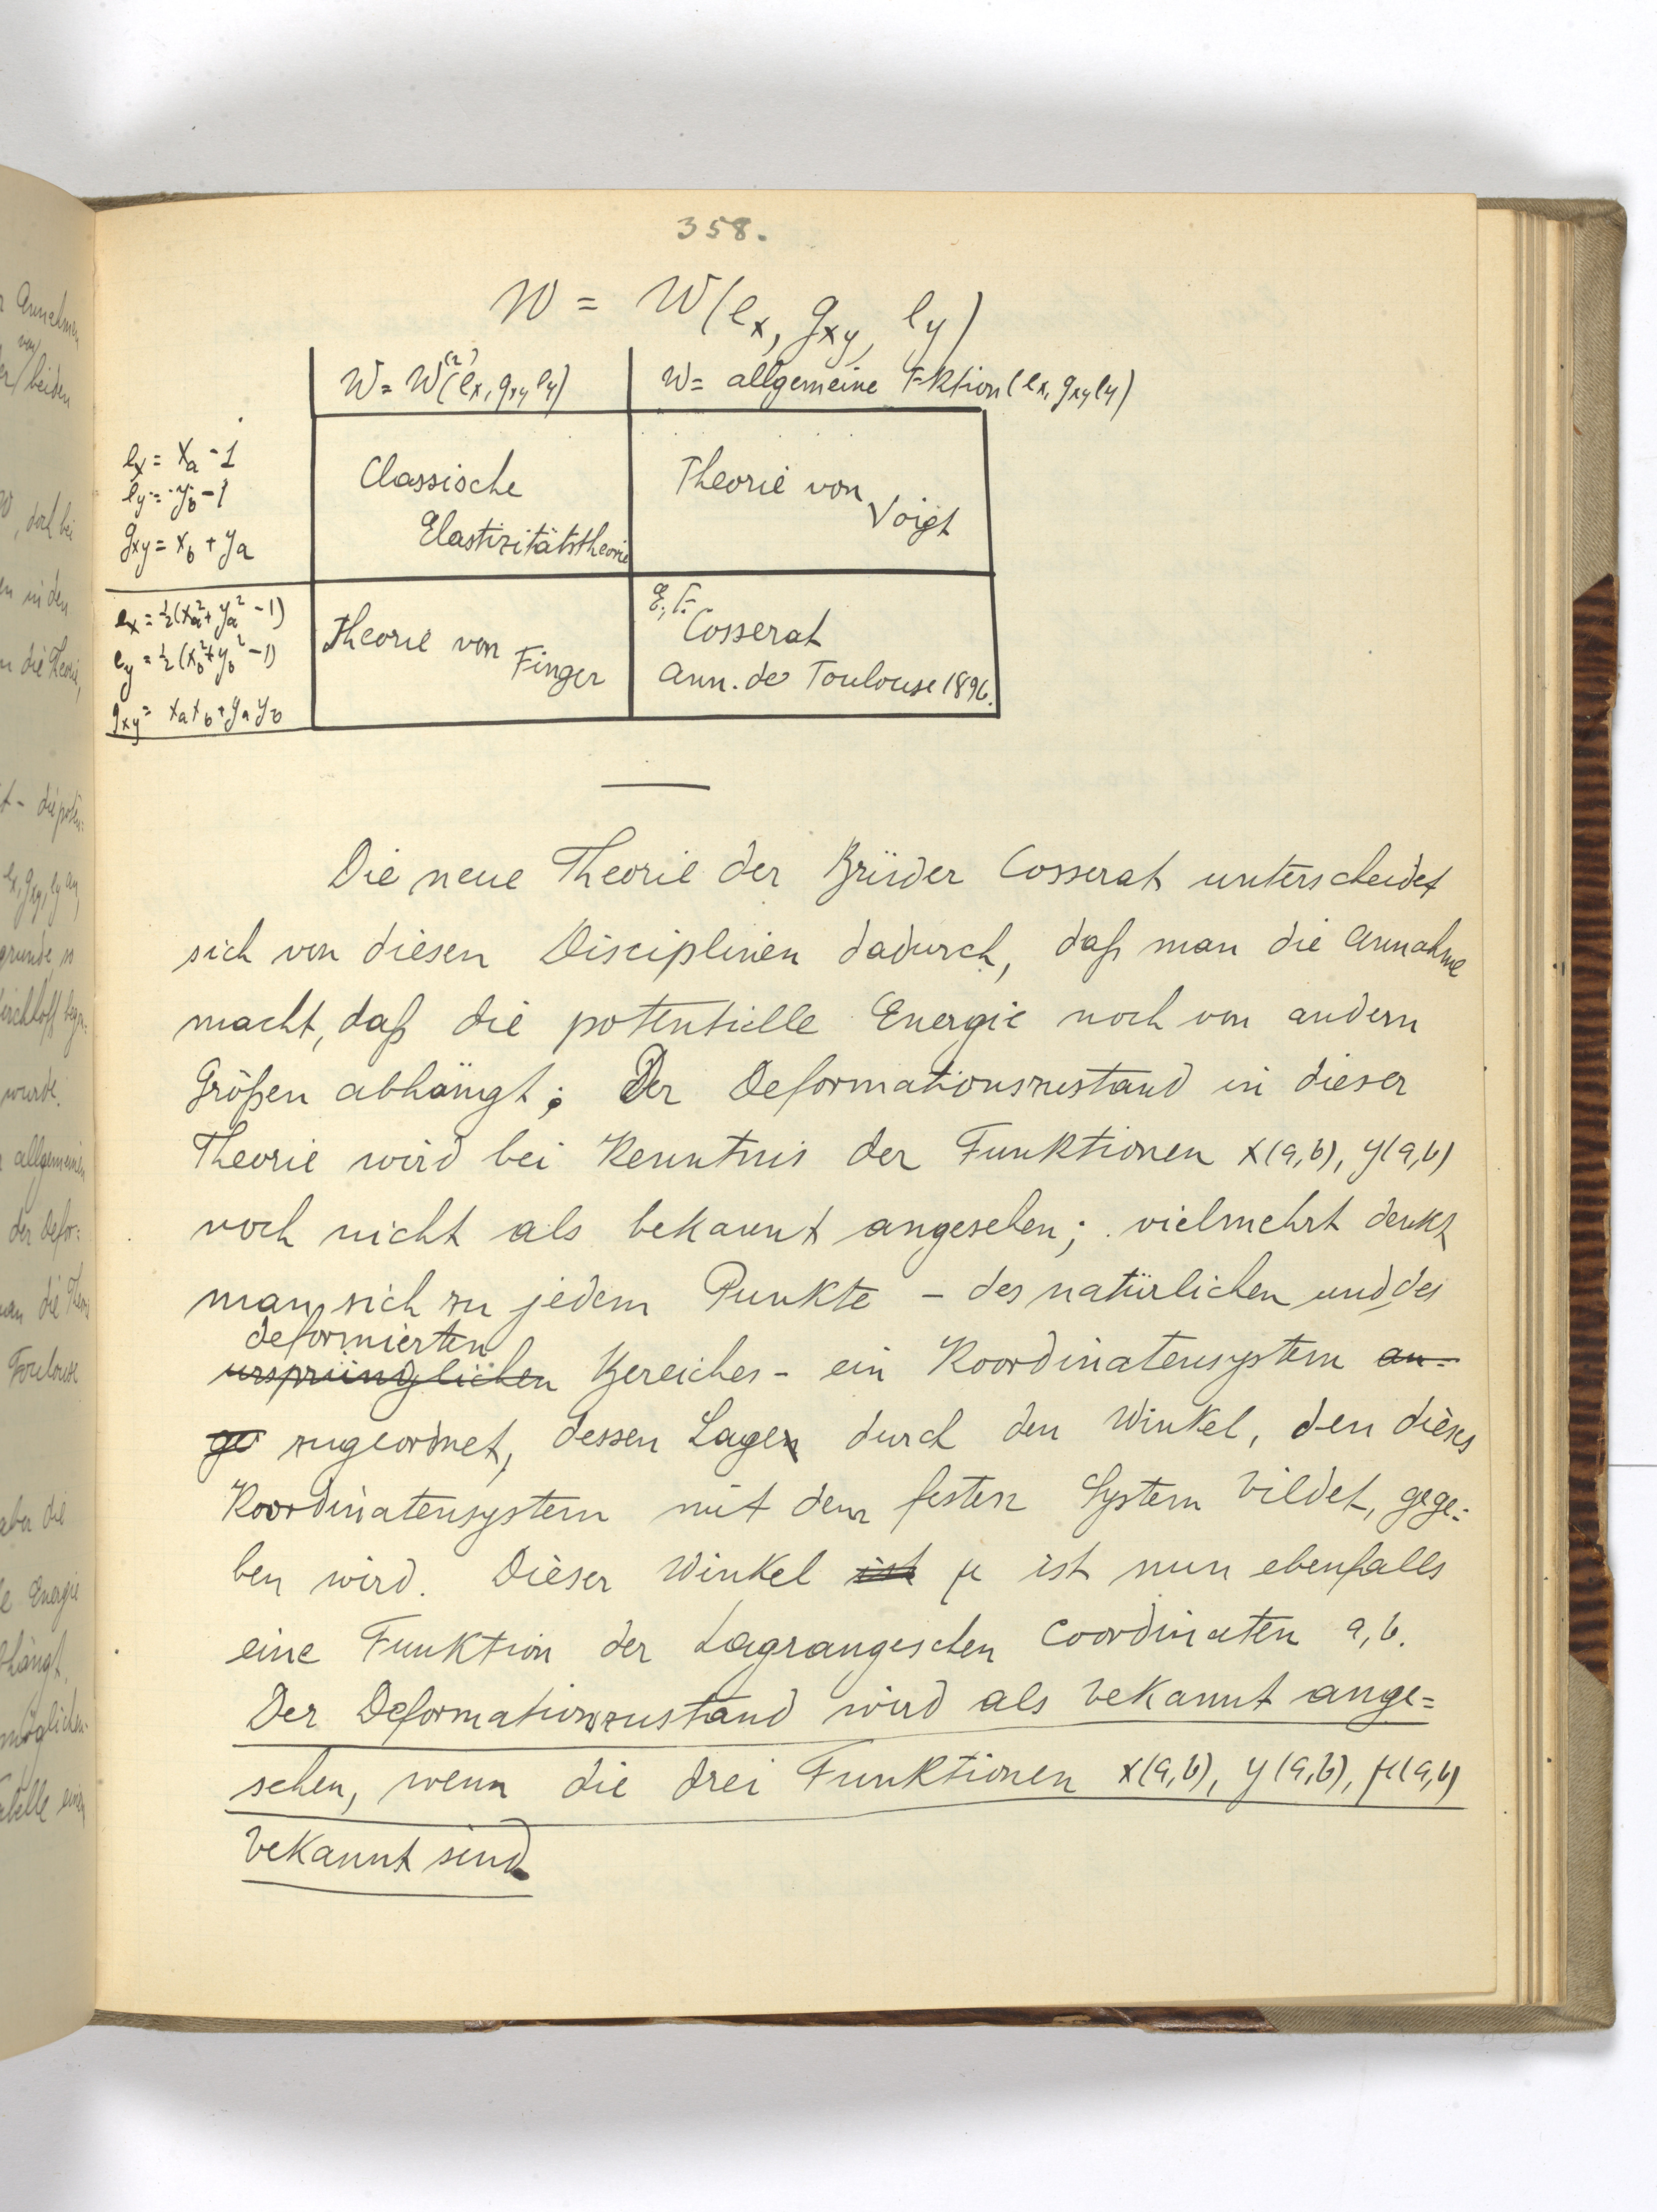 358.
W = W(ex, gxy, ey)
W = W(2)(ex, gxy ey)
W = allgemeine Fktion(ex, gxy ey)
ex = xa - 1
ey = yb - 1
gxy = xb + ya
Classische
Elastizitätstheorie
Theorie von
Voigt
ex = ½(xa² + ya² - 1)
ey = ½(xb² + yb² - 1)
gxy = xaxb + yayb
Theorie von
Finger
E., F.
Cosserat
Ann. de Toulouse 1896.
Die neue Theorie der Brüder Cosserat unterscheidet
sich von diesen Disciplinen dadurch, daß man die Annahme
macht, daß die potentielle Energie noch von andern
Größen abhängt; Der Deformationszustand in dieser
Theorie wird bei Kenntnis der Funktionen x(a,b), y(a,b)
noch nicht als bekannt angesehen; vielmehrt denkt
man sich zu jedem Punkte – des natürlichen und des
deformierten
ursprünglichen Bereiches – ein Koordinatensystem an-
ge zugeordnet, dessen Lagen durch den Winkel, den dieses
Koordinatensystem mit dem festen System bildet, gege-
ben wird. Dieser Winkel ist μ ist nun ebenfalls
eine Funktion der Lagrangeschen Coordinaten a,b.
Der Deformationszustand wird als bekannt ange=
sehen, wenn die drei Funktionen x(a,b), y(a,b), μ(a,b)
bekannt sind